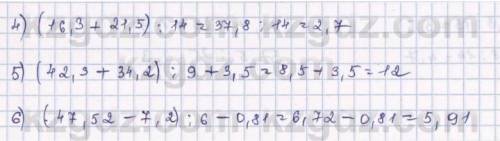 4) (16,3 + 21,5) : 14 = 37,8 : 14 = 2,7
5) (42,3 + 34,2) : 9 + 3,5 = 8,5 + 3,5 = 12
6) (47,52 - 7,2) : 6 - 0,81 = 6,72 - 0,81 = 5,91